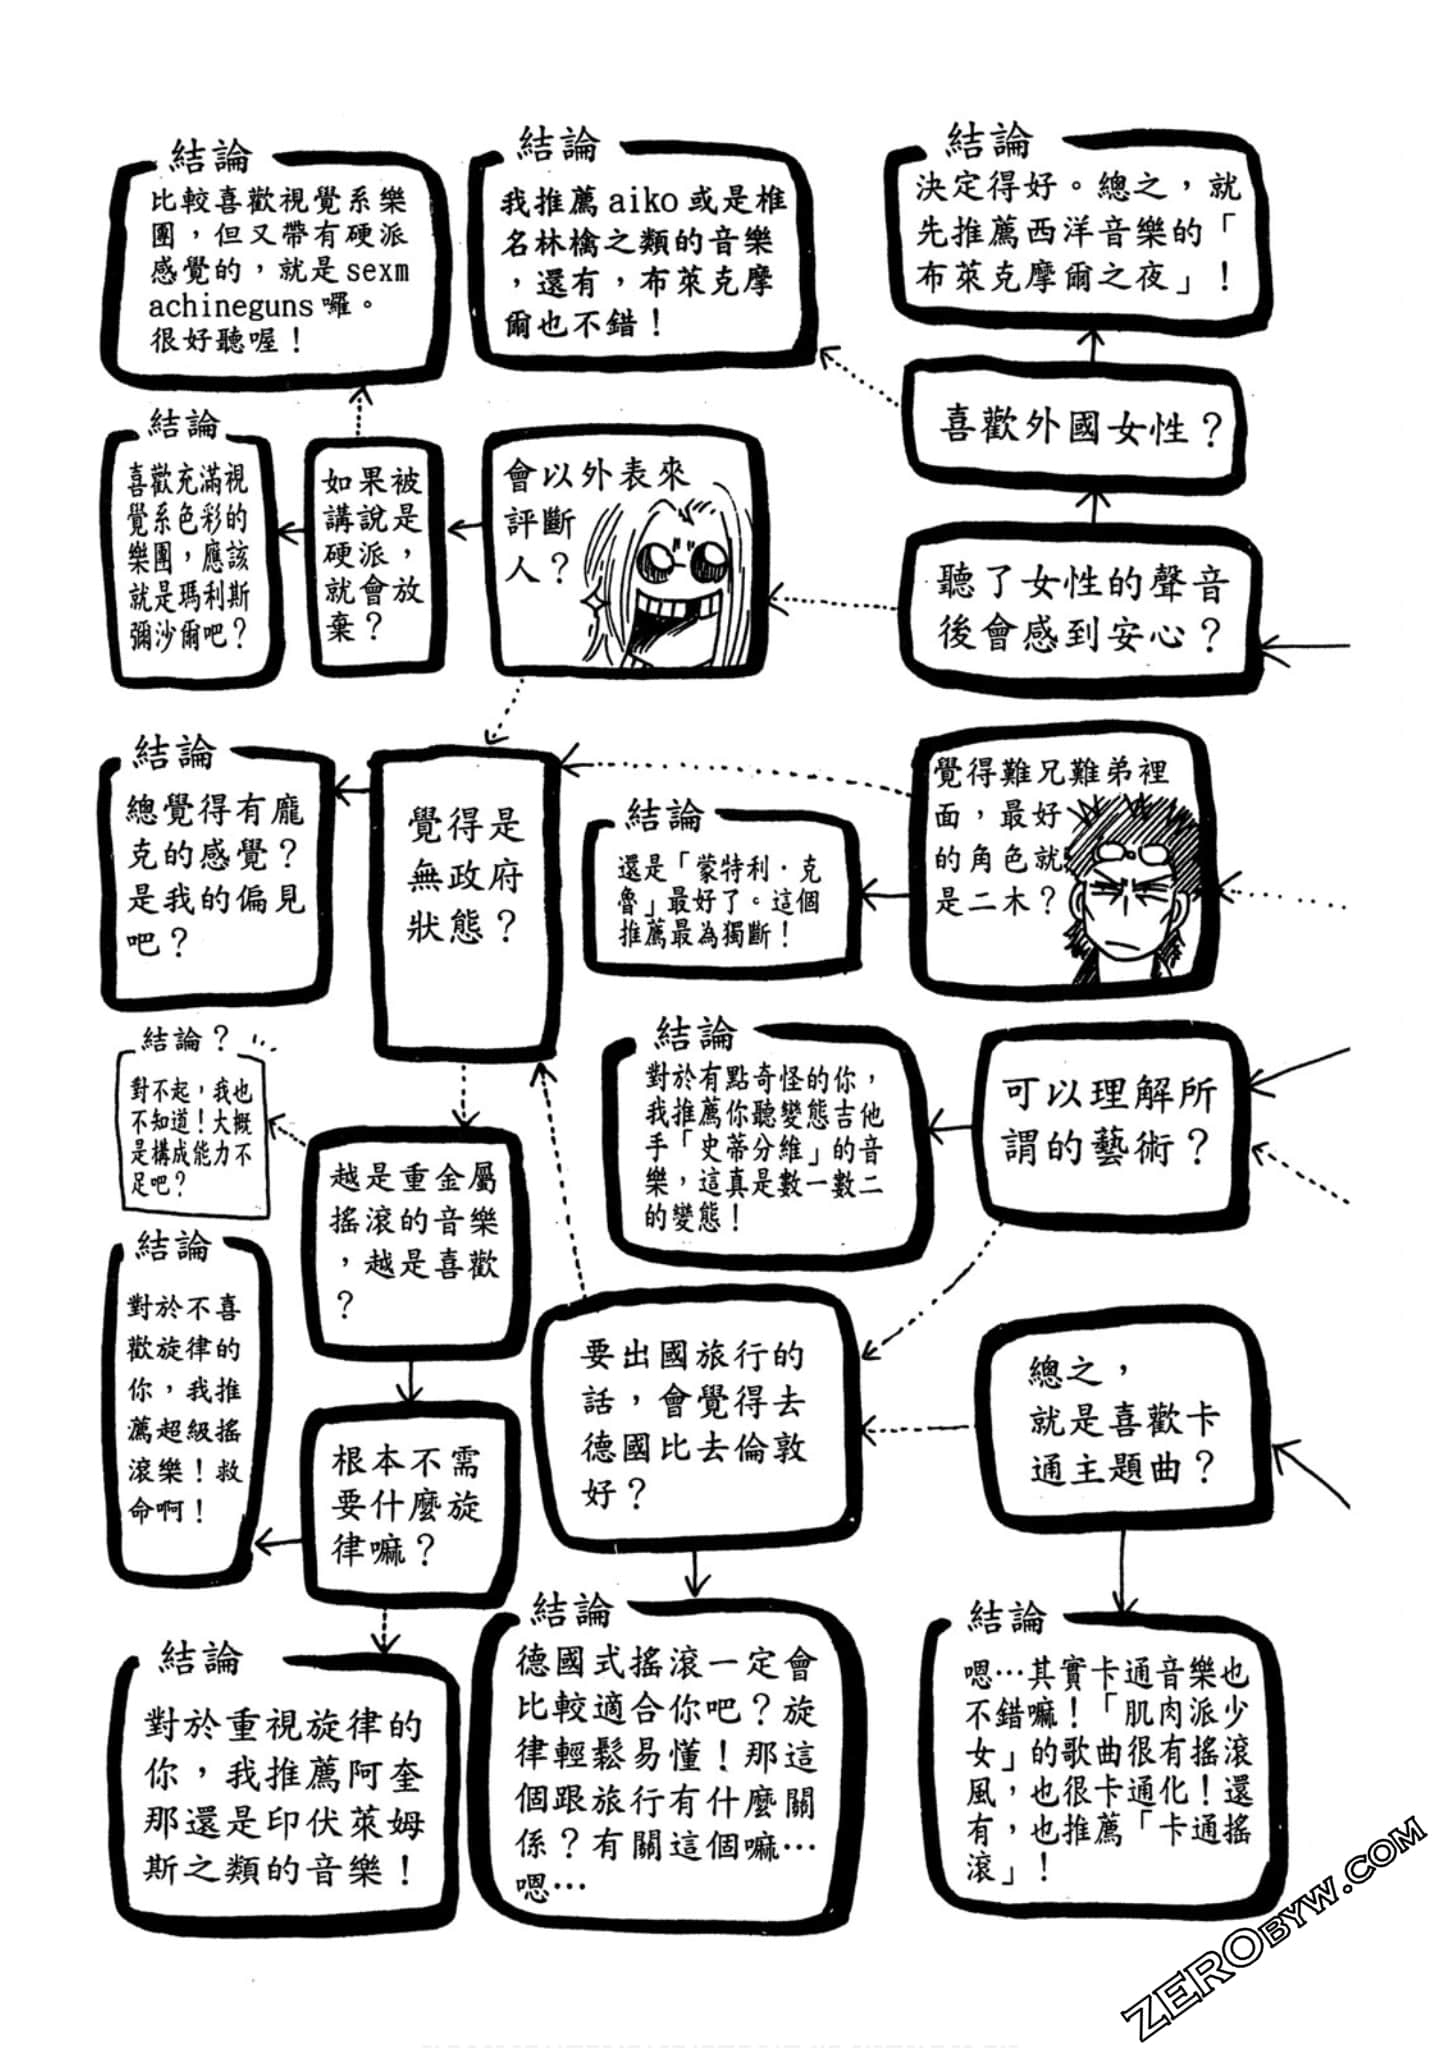 結論
決定得好。總之，就
先推薦西洋音樂的「
布萊克摩爾之夜」！
結論
我推薦aiko或是椎
名林檎之類的音樂
，還有，布萊克摩
爾也不錯！
結論
比較喜歡視覺系樂
團，但又帶有硬派
感覺的，就是sexm
achineguns囉。
很好聽喔！
喜歡外國女性？
聽了女性的聲音
後會感到安心？
會以外表來
評斷
人？
如果被
講說是
硬派，
就會放
棄？
結論
喜歡充滿視
覺系色彩的
樂團，應該
就是瑪利斯
彌沙爾吧？
覺得難兄難弟裡
面，最好
的角色就
是二木？
結論
還是「蒙特利·克
魯」最好了。這個
推薦最為獨斷！
覺得是
無政府
狀態？
結論
總覺得有龐
克的感覺？
是我的偏見
吧？
可以理解所
謂的藝術？
結論
對於有點奇怪的你，
我推薦你聽變態吉他
手「史蒂分維」的音
樂，這真是數一數二
的變態！
結論？
對不起，我也
不知道！大概
是構成能力不
足吧？
越是重金屬
搖滾的音樂
，越是喜歡
？
結論
對於不喜
歡旋律的
你，我推
薦超級搖
滾樂！救
命啊！
總之，
就是喜歡卡
通主題曲？
要出國旅行的
話，會覺得去
德國比去倫敦
好？
根本不需
要什麼旋
律嘛？
結論
嗯…其實卡通音樂也
不錯嘛！「肌肉派少
女」的歌曲很有搖滾
風，也很卡通化！還
有，也推薦「卡通搖
滾」！
結論
德國式搖滾一定會
比較適合你吧？旋
律輕鬆易懂！那這
個跟旅行有什麼關
係？有關這個嘛…
嗯…
結論
對於重視旋律的
你，我推薦阿奎
那還是印伏萊姆
斯之類的音樂！
ZEROBYW.COM